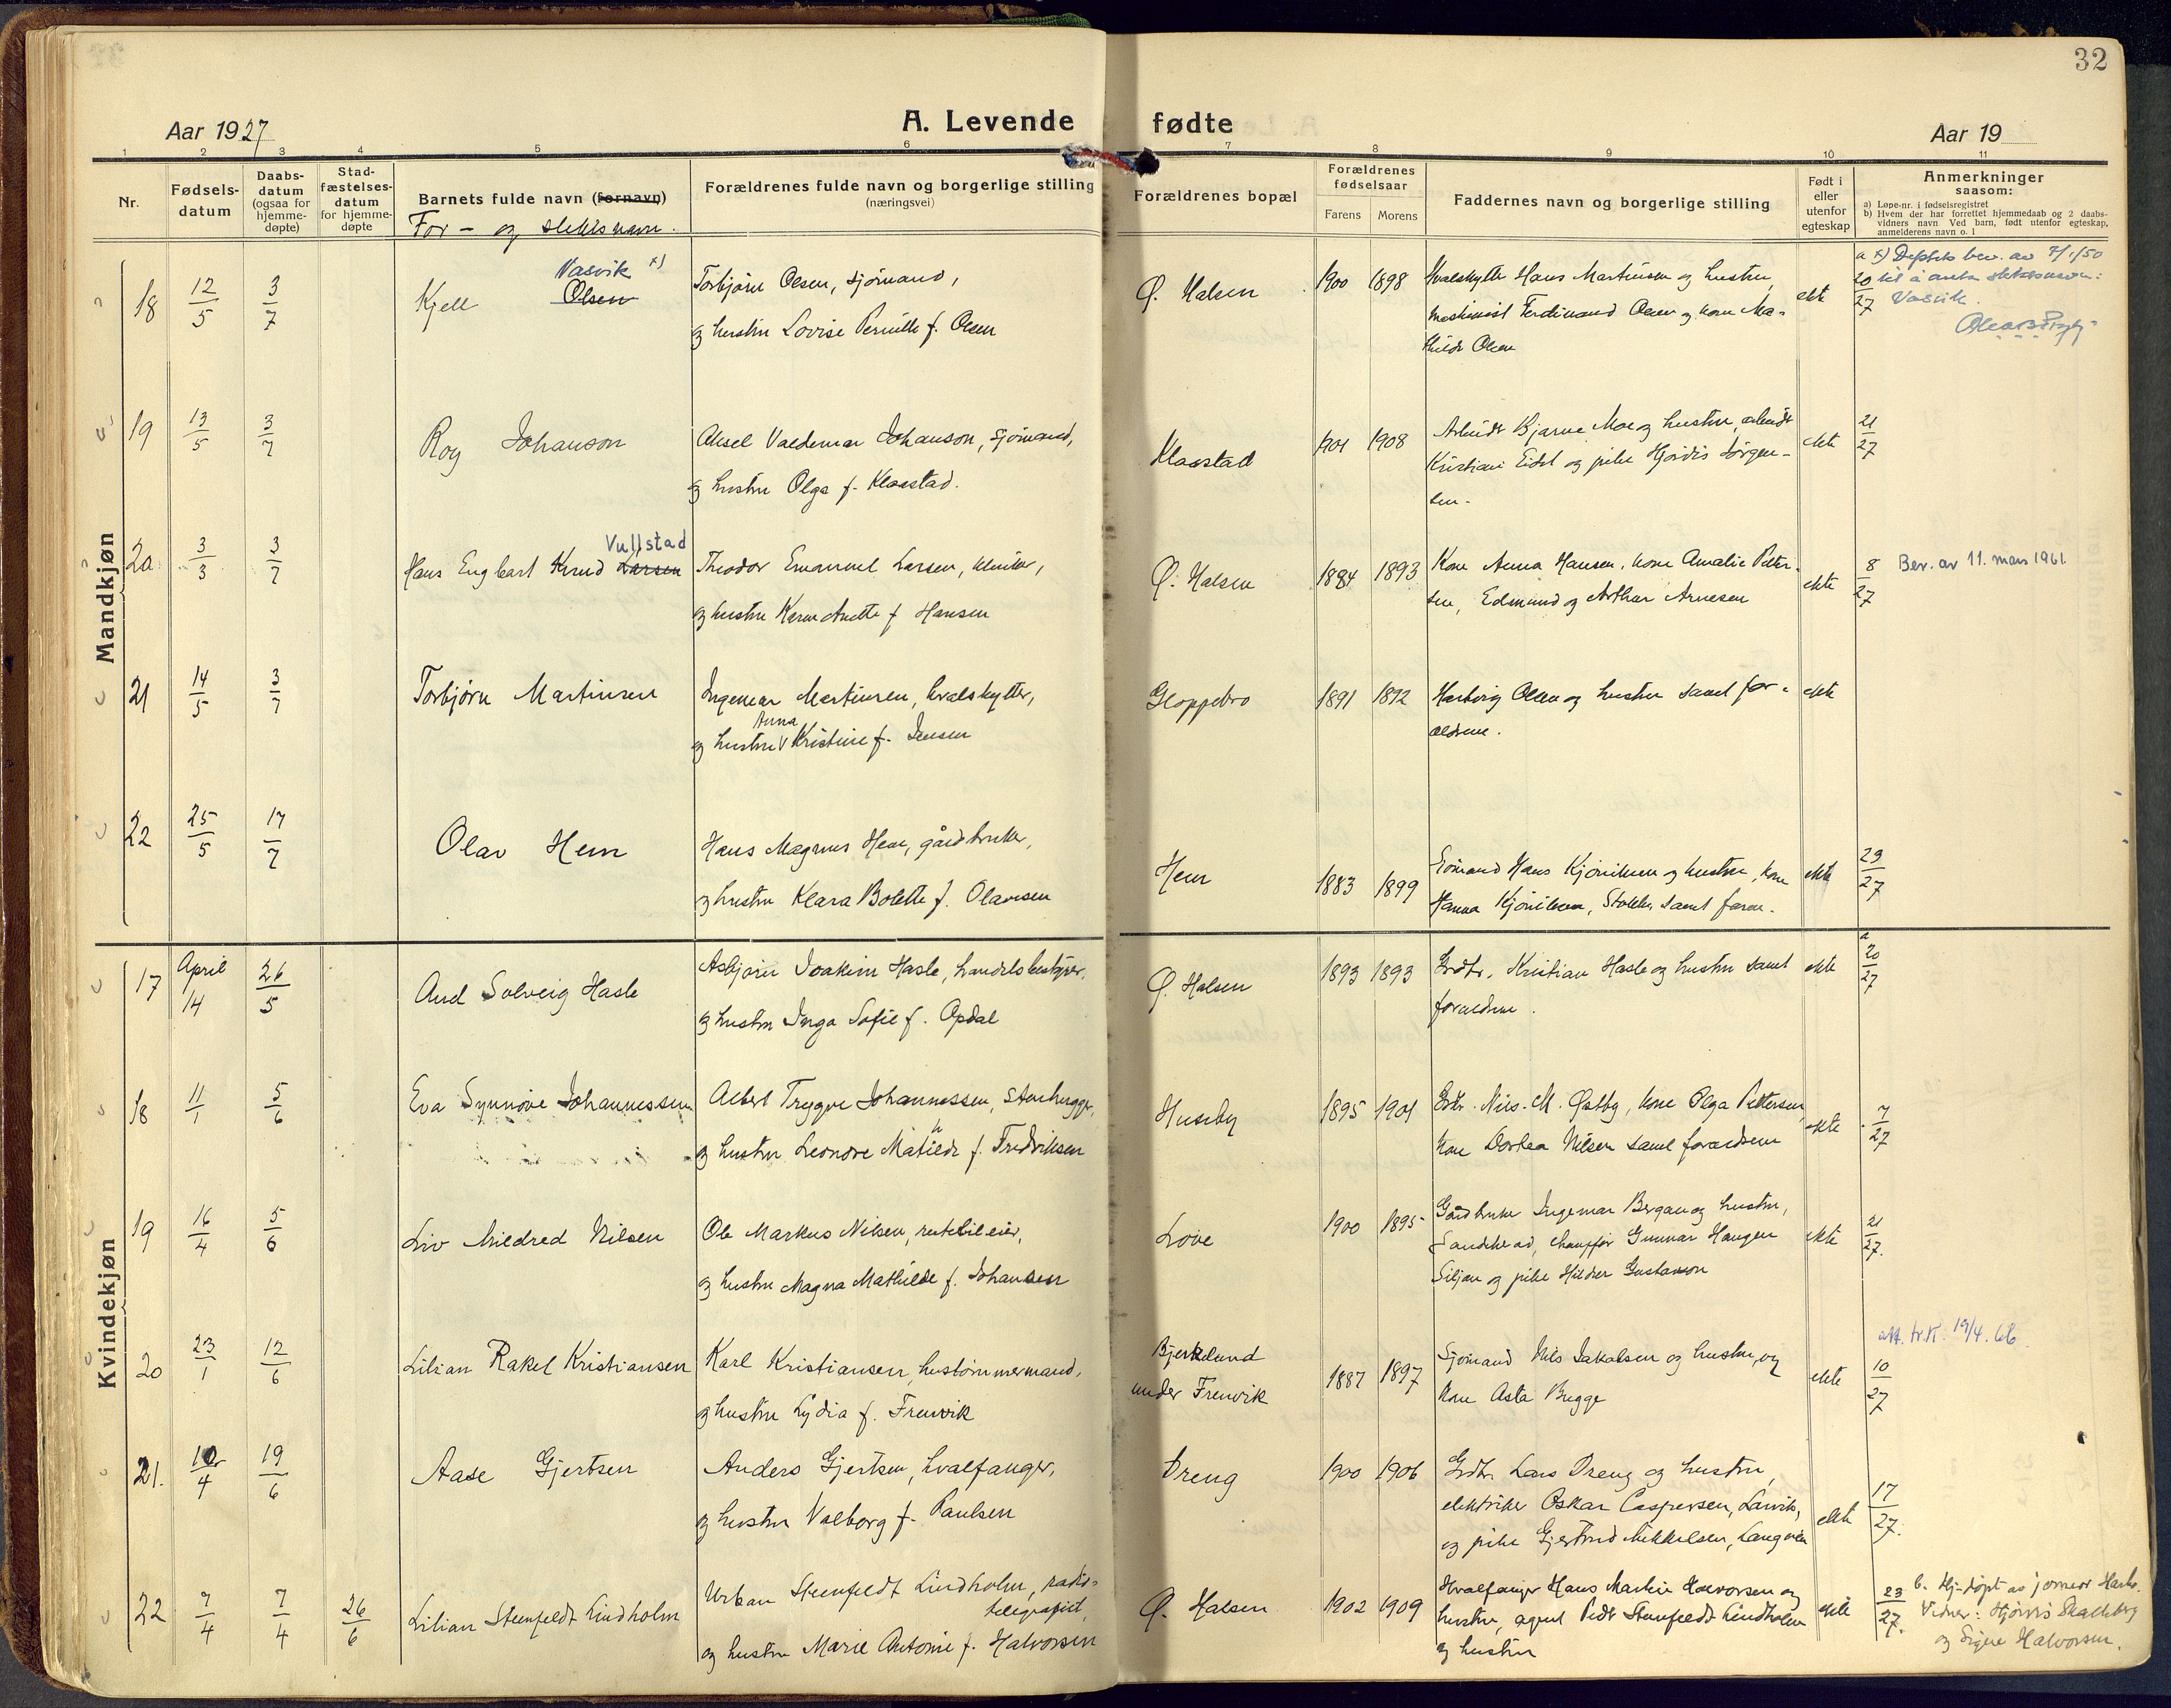 32
Aar 1927
A. Levende fødte
Aar 19
1 2 3 4 5 6 7 8 9 10 11
Nr.
Fødsels-
datum
Daabs-
datum
(ogsaa for
hjemme-
døpte)
Stad-
fæstelses-
datum
for hjemme-
døpte
Barnets fulde navn (fornavn)
For- og slektsnavn.
Forældrenes fulde navn og borgerlige stilling
(næringsvei)
Forældrenes bopæl
Forældrenes
fødselsaar
Farens Morens
Faddernes navn og borgerlige stilling
Født i
eller
utenfor
egteskap
Anmerkninger
saasom:
a) Løpe-nr. i fødselsregistret
b) Hvem der har forrettet hjemmedaab og 2 daabs-
vidners navn. Ved barn, født utenfor egteskap,
anmelderens navn o. l
Mandkjøn
18 12/5 3/7 Kjell Olsen
Vasvik x)
Torbjørn Olsen, sjømand,
og hustru Lovise Pernille f. Olsen
Ø. Halsen 1900 1898
Hvalskytter Hans Martinsen og hustru,
maskinist Ferdinand Olsen og kone Ma-
thilde Olsen
ekte
a 20/27
x) Deptets bev. av 7/1/50
til å anta slektsnavn:
Vasvik.
19 13/5 3/7 Roy Johanson
Aksel Valdemar Johanson, sjømand,
og hustru Olga f. Klaastad.
Klaastad 1901 1908
Arbeider Bjarne Moe og hustru, arbeider
Kristian Eidet og pike Hjørdis Jørgen-
sen.
ekte 21/27
20 3/3 3/7 Hans Englbart Knud Larsen
Vullstad
Theodor Emanuel Larsen,
og hustru Karen Anette f. Hansen
Ø. Halsen 1884 1893
Kone Anna Hansen, kone Amalie Peter-
sen, Edmund og Arthur Arnesen
ekte 8/27 Bev. av 11. mars 1961.
21 14/5 3/7 Torbjørn Martinsen
Ingemar Martinsen, hvalskytter,
og hustru Anna Kristine f. Jensen
Gloppebro 1891 1892
Hartvig Olsen og hustru samt for-
ældrene.
ekte
22 25/5 17/7 Olav Hem
Hans Magnus Hem, gårdbruker,
og hustru Klara Bolette f. Olavesen
Hem 1883 1899
Sømand Hans Kjøniksen og hustru, kone
Hanna Kjøniksen, Stokke, samt faren.
ekte 29/27
Kvindekjøn
17 April 14 26/5 Aud Solveig Hasle
Asbjørn Joakim Hasle, handelsbestyrer,
og hustru Inga Sofie f. Opdal
Ø. Halsen 1893 1893
Grdbr. Kristian Hasle og hustru samt
forældrene.
ekte a 20/27
18 11/1 5/6 Eva Synnøve Johannessen
Albert Trygve Johannessen, Stenhugger,
og hustru Leonore Matilde f. Fredriksen
Huseby 1895 1901
Grbr. Nils. M. Østby, kone Olga Pettersen,
kone Dorthea Nilsen samt forældrene
ekte 7/27
19 16/4 5/6 Liv Mildred Nilsen
Ole Markus Nilsen, rutebileier,
og hustru Magna Mathilde f. Johansen
Love 1900 1895
Gårdbruker Ingemar Bergan og hustru,
Sandehead, chauffør Gunnar Haugen
Siljan og pike Hildur Gustavson
ekte 21/27.
20 23/1 12/6 Lilian Rakel Kristiansen
Karl Kristiansen, hustømmermand,
og hustru Lydia f. Freuvik
Bjerkelund
under Freuvik
1887 1897
Sjømand Nils Jakobsen og hustru, og
kone Asta Bugge
ekte 10/27
att. tr.k. 19/4. 66
21. 10/4 19/6 Aase Gjertsen
Anders Gjertsen, hvalfanger,
og hustru Valborg f. Paulsen
Dreng 1900 1906
Grdbr. Lars Dreng og hustru,
elektriker Oskar Caspersen, Larvik,
og pike Gjertrud Mikkelsen, Langøen
ekte 17/27.
22 7/4 7/4 26/6 Lilian Steenfeldt Lindholm
Urban Steenfeldt Lindholm, radio-
telegrafist,
og hustru Marie Antonie f. Halvorsen
Ø. Halsen 1902 1909
Hvalfanger Hans Martin Halvorsen og
hustru, agent Peder Steenfeldt Lindholm
og hustru
ekte 23/27.
b. Hj-døpt av jormor
Vidner: Hjørdis Skalleberg
og Signe Halvorsen.